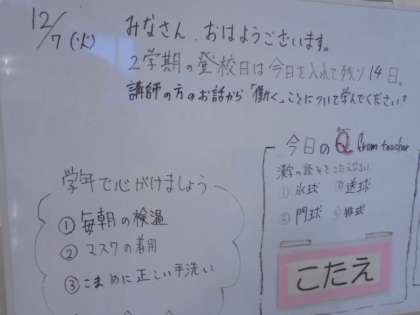 12/7(火)
みなさん、おはようございます。
2学期の登校日は今日を入れて残り14日。
講師の方のお話から「働く」ことについて学んでください。
学年で心がけましょう
①毎朝の検温
②マスクの着用
③こまめに正しい手洗い
今日のQ from teacher
漢字の読みをこたえなさい
①氷球 ③送球
②門球 ④排球
こたえ